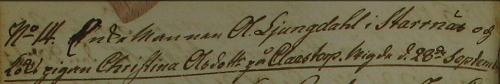 No 14. Enkl. Mannen Ol. Ljungdahl i Starrnäs og
pigan Christina Olsdotr på Claestorp. vigde d. 28de Septem